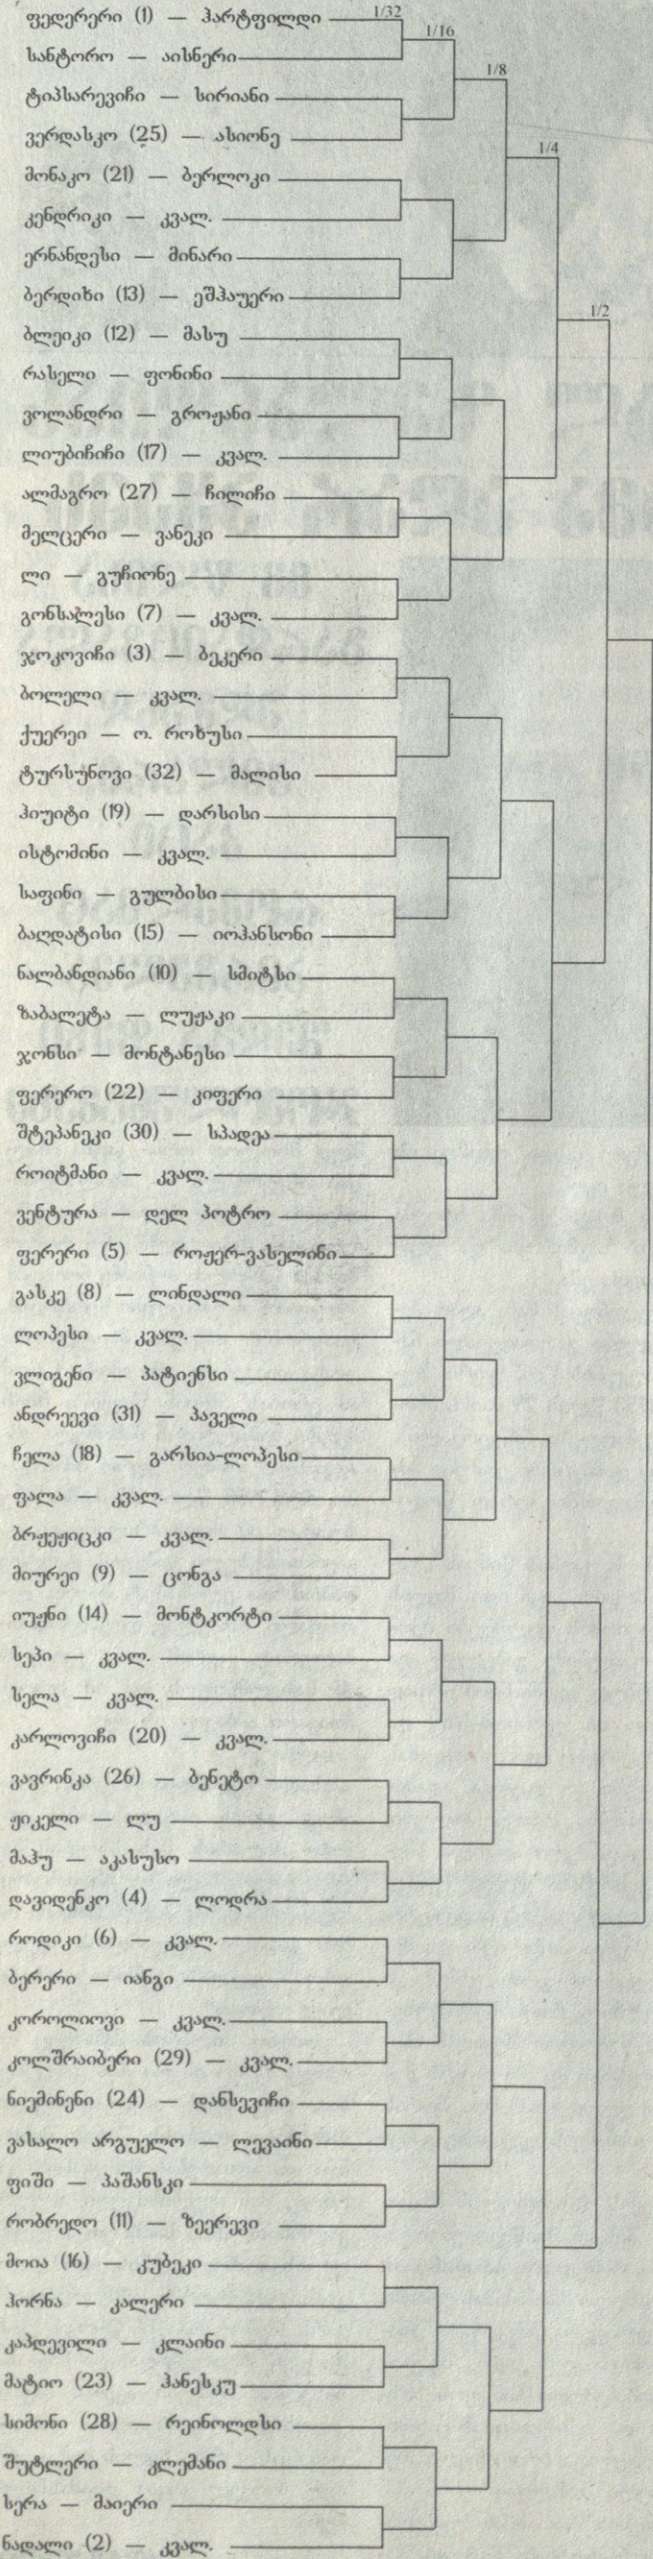 ფედერერი (1) — ჰარტფილდი 1/32
სანტორო — აისნერი 1/16
ტიპსარევიჩი — სირიანი 1/8
ვერდასკო (25) — ასიონე 1/4
მონაკო (21) — ბერლოკი
კენდრიკი — კვალ.
ერნანდესი — მინარი
ბერდიხი (13) — ეშჰაუერი 1/2
ბლეიკი (12) — მასუ
რასელი — ფონინი
ვოლანდრი — გროჟანი
ლიუბიჩიჩი (17) — კვალ.
ალმაგრო (27) — ჩილიჩი
მელცერი — ვანეკი
ლი — გუჩიონე
გონსალესი (7) — კვალ.
ჯოკოვიჩი (3) — ბეკერი
ბოლელი — კვალ.
ქუერეი — ო. როხუსი
ტურსუნოვი (32) — მალისი
ჰიუიტი (19) — დარსისი
ისტომინი — კვალ.
საფინი — გულბისი
ბაღდატისი (15) — იოჰანსონი
ნალბანდიანი (10) — სმიტსი
ზაბალეტა — ლუჟაკი
ჯონსი — მონტანესი
ფერერო (22) — კიფერი
შტეპანეკი (30) — სპადეა
როიტმანი — კვალ.
ვენტურა — დელ პოტრო
ფერერი (5) — როჟერ-ვასელინი
გასკე (8) — ლინდალი
ლოპესი — კვალ.
ვლიგენი — პატიენსი
ანდრეევი (31) — პაველი
ჩელა (18) — გარსია-ლოპესი
ფალა — კვალ.
ბრჟეჟიცკი — კვალ.
მიურეი (9) — ცონგა
იუჟნი (14) — მონტკორტი
სეპი — კვალ.
სელა — კვალ.
კარლოვიჩი (20) — კვალ.
ვავრინკა (26) — ბენეტო
ჟიკელი — ლუ
მაჰუ — აკასუსო
დავიდენკო (4) — ლოდრა
როდიკი (6) — კვალ.
ბერერი — იანგი
კოროლიოვი — კვალ.
კოლშრაიბერი (29) — კვალ.
ნიემინენი (24) — დანსევიჩი
ვასალო არგუელო — ლევაინი
ფიში — პაშანსკი
რობრედო (11) — ზეერევი
მოია (16) — კუბეკი
ჰორნა — კალერი
კაპდევილი — კლაინი
მატიო (23) — ჰანესკუ
სიმონი (28) — რეინოლდსი
შუტლერი — კლემანი
სერა — მაიერი
ნადალი (2) — კვალ.